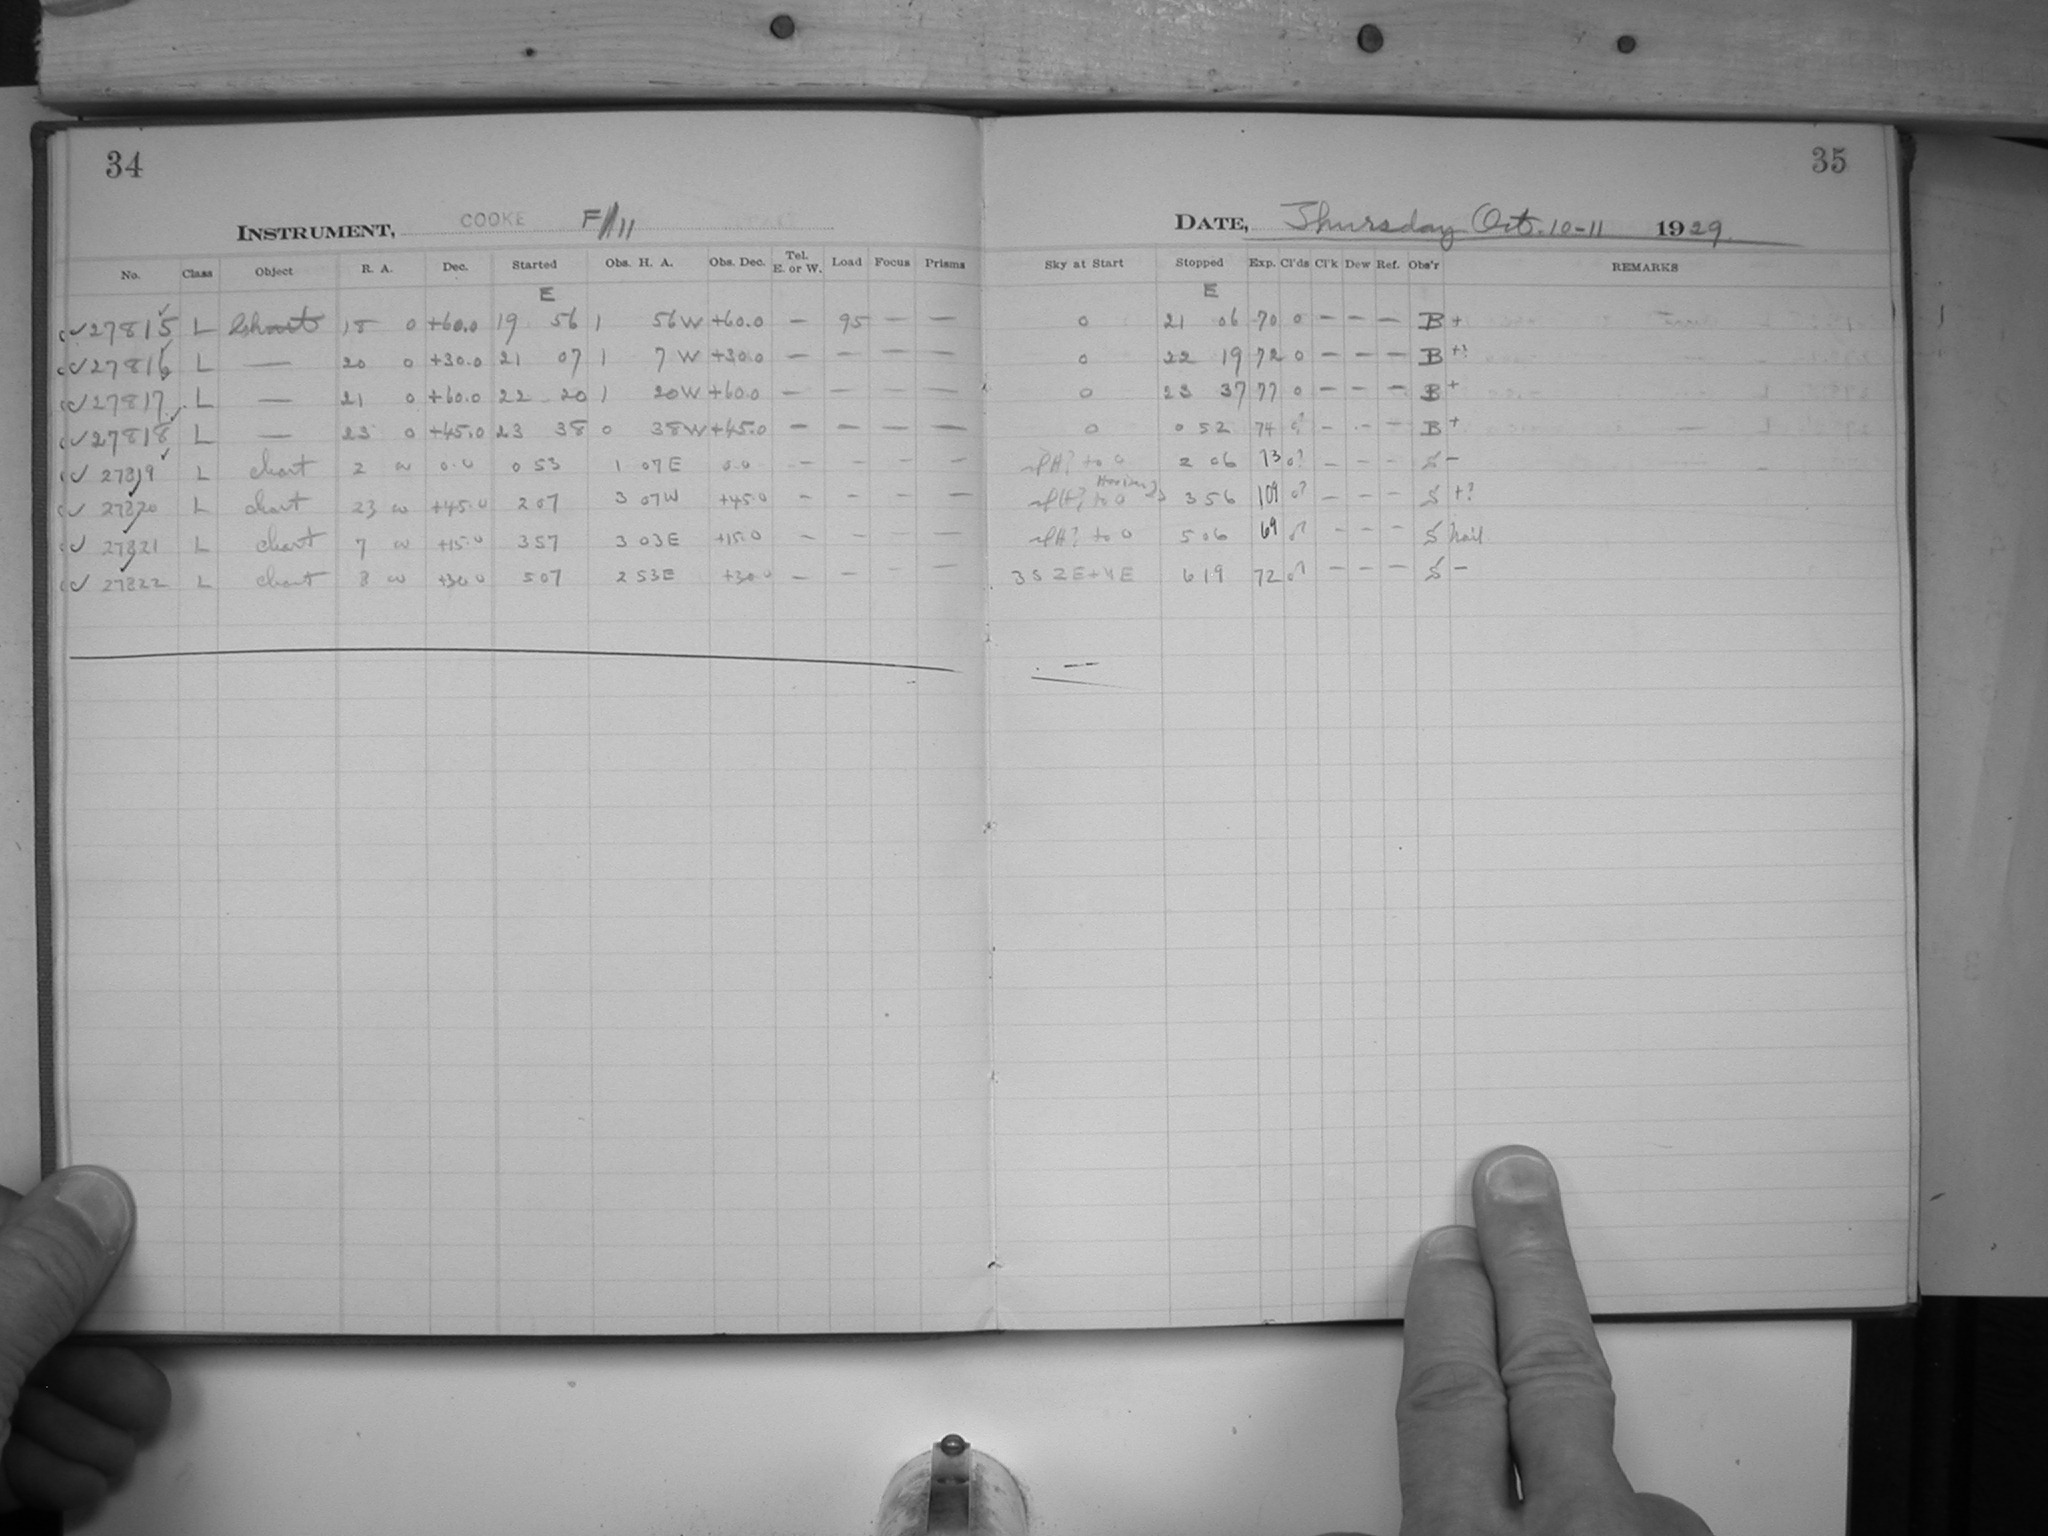 34
35
INSTRUMENT, COOKE F/11
DATE, Thursday Oct. 10-11 1929
No. Class Object R. A. Dec. Started Obs. H. A. Obs. Dec. Tel. E. or W. Load Focus Prisms Sky at Start Stopped Exp. Cl'ds Cl'k Dew Ref. Obs'r REMARKS
E E
✓27815 L Chart 18 0 +60.0 19 56 1 56W +60.0 — 95 — — 0 21 06 70 0 — — — B +
✓27816 L — 20 0 +30.0 21 07 1 7 W +30.0 — — — — 0 22 19 72 0 — — — B +?
✓27817 L — 21 0 +60.0 22 20 1 20W +60.0 — — — — 0 23 37 77 0 — — — B +
✓27818 L — 23 0 +45.0 23 38 0 38W +45.0 — — — — 0 0 52 74 0? — — — B +
✓ 27819 L chart 2 0.0 0 53 1 07E 0.0 — — — — to 0 2 06 73 0? — — — S —
✓ 27820 L chart 23 +45.0 2 07 3 07W +45.0 — — — — to 0 3 56 109 0? — — — S +?
✓ 27821 L chart 7 +15.0 3 57 3 03E +15.0 — — — — to 0 5 06 69 0? — — — S
✓ 27822 L chart 8 +30.0 5 07 2 53E +30.0 — — — — 6 19 72 0? — — — S —